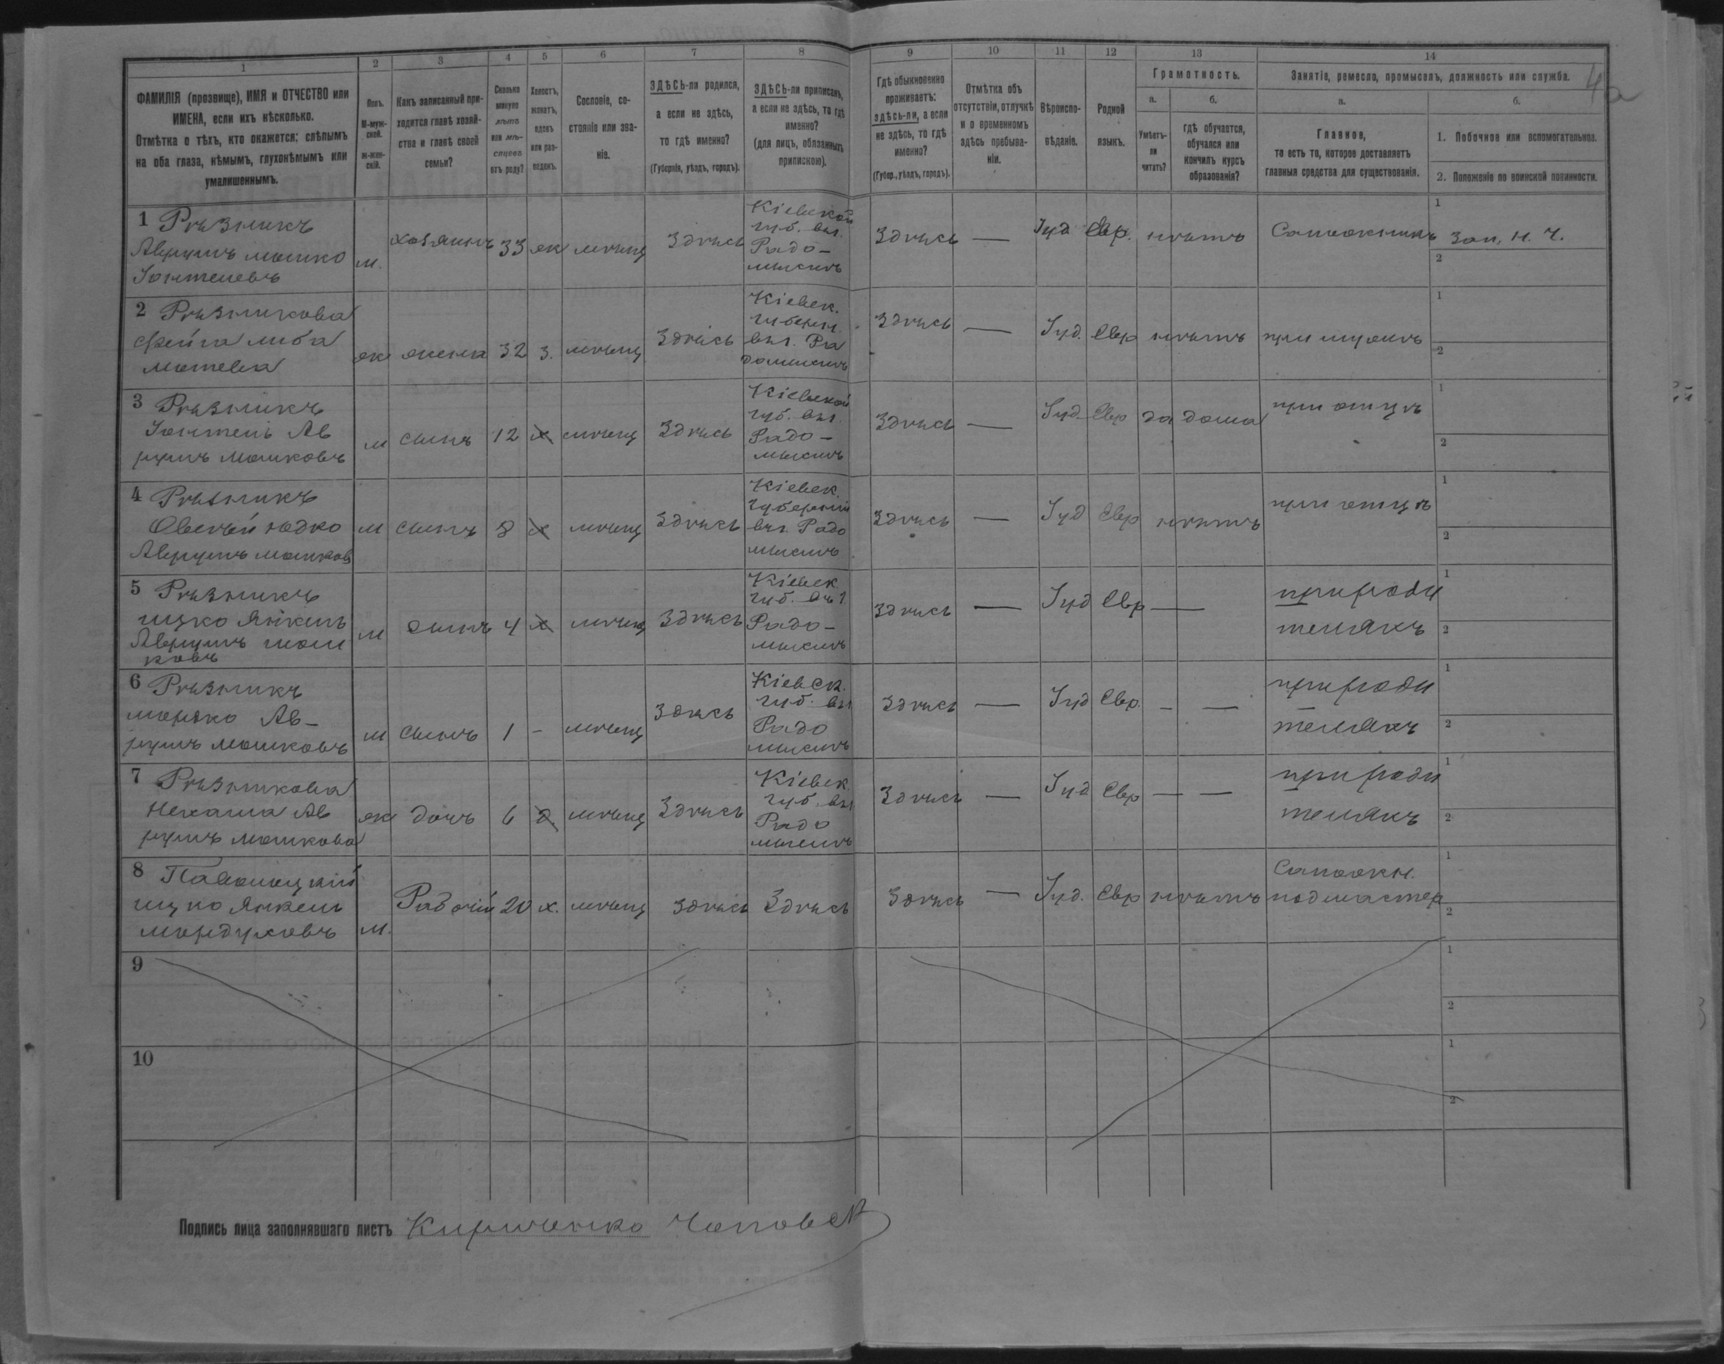 4а
1 2 3 4 5 6 7 8 9 10 11 12 13 14
ФАМИЛІЯ (прозвище), ИМЯ и ОТЧЕСТВО или
ИМЕНА, если ихъ нѣсколько.
Отмѣтка о тѣхъ, кто окажется: слѣпымъ
на оба глаза, нѣмымъ, глухонѣмымъ или
умалишеннымъ.
Полъ.
М-муж-
ской.
Ж-жен-
скій.
Какъ записанный при-
ходится главѣ хозяй-
ства и главѣ своей
семьи?
Сколько
минуло
лѣтъ
или мѣ-
сяцевъ
отъ роду?
Холостъ,
женатъ,
вдовъ
или раз-
веденъ.
Сословіе, со-
стояніе или зва-
ніе.
ЗДѢСЬ-ли родился,
а если не здѣсь,
то гдѣ именно?
(Губернія, уѣздъ, городъ).
ЗДѢСЬ-ли приписанъ,
а если не здѣсь, то гдѣ
именно?
(для лицъ, обязанныхъ
припискою).
Гдѣ обыкновенно
проживаетъ:
здѣсь-ли, а если
не здѣсь, то гдѣ
именно?
(Губер., уѣздъ, городъ).
Отмѣтка объ
отсутствіи, отлучкѣ
и о временномъ
здѣсь пребыва-
ніи.
Вѣроиспо-
вѣданіе.
Родной
языкъ.
Грамотность.
а.
Умѣетъ-
ли
читать?
б.
Гдѣ обучается,
обучался или
кончилъ курсъ
образованія?
Занятіе, ремесло, промыселъ, должность или служба.
а.
Главное,
то есть то, которое доставляетъ
главныя средства для существованія.
б.
1. Побочное или вспомогательное.
2. Положеніе по воинской повинности.
1 Рѣзникъ
Аврумъ Мошко
Іонтелевъ
м. хозяинъ 33 ж мѣщ Здѣсь
Кіевской
губ. въ г.
Радо-
мыслѣ
Здѣсь — Іуд Евр. нѣтъ Сапожникъ
1 Зап. н. ч.
2
2 Рѣзникова
Фейга Либа
ж жена 32 з. мѣщ Здѣсь
Кіевск.
губерн.
въ г. Ра
домыслѣ
Здѣсь — Іуд. Евр нѣтъ при мужѣ
1
2
3 Рѣзникъ
Іонтель Ав
румъ Мошковъ
м сынъ 12 х мѣщ Здѣсь
Кіевской
губ. въ г.
Радо-
мыслѣ
Здѣсь — Іуд Евр да дома при отцѣ
1
2
4 Рѣзникъ
Овсей Юдко
Аврумъ Мошков
м сынъ 8 х мѣщ Здѣсь
Кіевск.
Губерніи
въ г. Радо
мыслѣ
Здѣсь — Іуд Евр нѣтъ при отцѣ
1
2
5 Рѣзникъ
Ицко Янкель
Аврумъ Мош
ковъ
м сынъ 4 х мѣщ Здѣсь
Кіевск
губ. въ г.
Радо-
мыслѣ
Здѣсь — Іуд Евр —
при роди
теляхъ
1
2
6 Рѣзникъ
Мордко Ав-
румъ Мошковъ
м сынъ 1 - мѣщ Здѣсь
Кіевск.
губ. въ г
Радо
мыслѣ
Здѣсь — Іуд Евр — —
при роди
теляхъ
1
2
7 Рѣзникова
Нехама Ав
румъ Мошкова
ж дочь 6 д мѣщ Здѣсь
Кіевск
губ. въ г
Радо
мыслѣ
Здѣсь — Іуд Евр — —
при роди
теляхъ
1
2
8 Паволоцкій
Ицко Янкель
Мордуховъ
м. Рабочій 20 х. мѣщ Здѣсь Здѣсь Здѣсь — Іуд. Евр нѣтъ
Сапожн.
подмастер
1
2
9
1
2
10
1
2
Подпись лица заполнявшаго листъ Кириченко